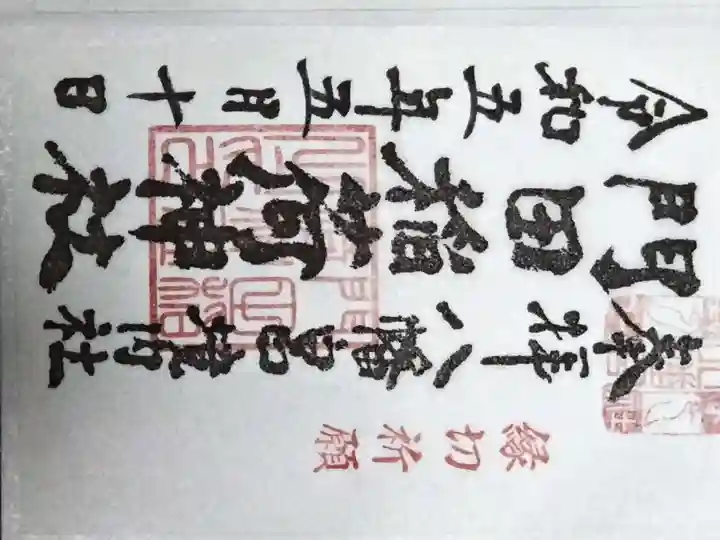 縁切祈願
奉拝 八幡宮境内社
門田稲荷神社
令和五年五月十日